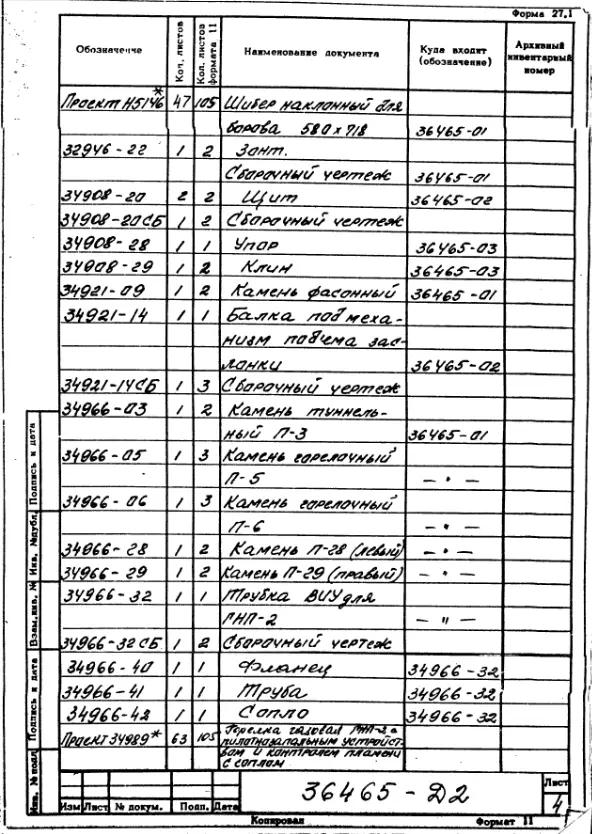 Форма 27.1
Обозначение Кол. листов Кол. листов формата 11 Наименование документа Куда входит (обозначение) Архивный инвентарный номер
Проект Н5146* 47 105 Шибер наклонный для
борова 580×718 36465-01
32946-22 1 2 Зонт.
Сборочный чертеж 36465-01
34908-20 2 2 Щит 36465-02
34908-20СБ 1 2 Сборочный чертеж
34908-28 1 1 Упор 36465-03
34908-29 1 2 Клин 36465-03
34921-09 1 2 Камень фасонный 36465-01
34921-14 1 1 Балка под меха-
низм подъема зас-
лонки 36465-02
34921-14СБ 1 3 Сборочный чертеж
34966-03 1 2 Камень туннель-
ный П-3 36465-01
34966-05 1 3 Камень горелочный
П-5 — " —
34966-06 1 3 Камень горелочный
П-6 — " —
34966-28 1 2 Камень П-28 (левый) — " —
34966-29 1 2 Камень П-29 (правый) — " —
34966-32 1 1 Трубка ВИУ для
ГНП-2 — " —
34966-32СБ 1 2 Сборочный чертеж
34966-40 1 1 Фланец 34966-32
34966-41 1 1 Труба 34966-32
34966-42 1 1 Сопло 34966-32
Проект 34989* 63 105 Горелка газовая ГНП-2 с
пилотнозапальным устройст-
вом и контролем пламени
с соплом
Инв. № подл. Подпись и дата Взам. инв. № Инв. № дубл. Подпись и дата
Изм Лист № докум. Подп. Дата
36465-Д2
Лист
4
Копировал Формат 11